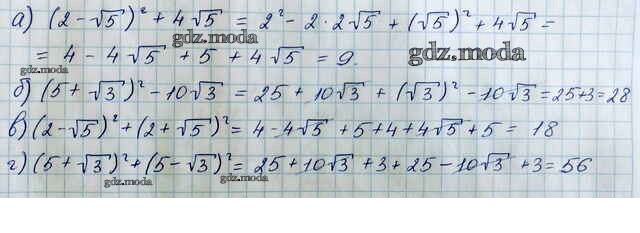 а) (2 - √5)² + 4√5 = 2² - 2 · 2√5 + (√5)² + 4√5 =
gdz.moda
= 4 - 4√5 + 5 + 4√5 = 9.
gdz.moda
gdz.moda
б) (5 + √3)² - 10√3 = 25 + 10√3 + (√3)² - 10√3 = 25+3 = 28
в) (2-√5)² + (2 + √5)² = 4 - 4√5 + 5 + 4 + 4√5 + 5 = 18
г) (5 + √3)² + (5 - √3)² = 25 + 10√3 + 3 + 25 - 10√3 + 3 = 56
gdz.moda
gdz.moda